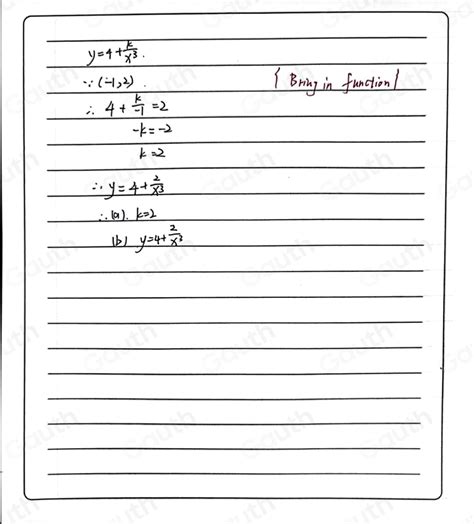 y=4+k/x³.
∵(-1,2).
{Bring in function}
∴ 4+k/-1=2
-k=-2
k=2
∴y=4+2/x³
∴(a). k=2
(b) y=4+2/x³